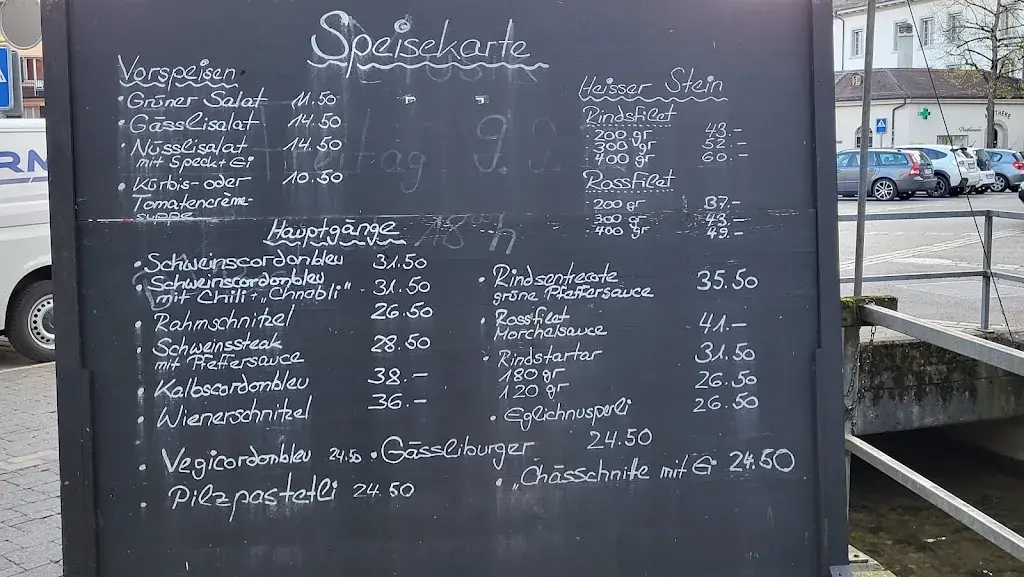 Speisekarte
Vorspeisen
• Grüner Salat 11.50
• Gässlisalat 14.50
• Nüsslisalat 14.50
mit Speck + Ei
• Kürbis- oder 10.50
Tomatencreme-
suppe
Freitag 9.
18 h
Heisser Stein
Rindsfilet
200 gr 43.-
300 gr 52.-
400 gr 60.-
Rossfilet
200 gr 37.-
300 gr 43.-
400 gr 49.-
Hauptgänge
• Schweinscordonbleu 31.50
• Schweinscordonbleu
mit Chili "Chnebli" 31.50
• Rahmschnitzel 26.50
• Schweinssteak 28.50
mit Pfeffersauce
• Kalbscordonbleu 38.-
• Wienerschnitzel 36.-
• Vegicordonbleu 24.50
• Pilzpastetli 24.50
• Rindsentecote 35.50
grüne Pfeffersauce
• Rossfilet 41.-
Morchelsauce
• Rindstartar
180 gr 31.50
120 gr 26.50
• Eglichnusperli 26.50
• Gässliburger 24.50
• "Chässchnitte mit Ei 24.50
RM